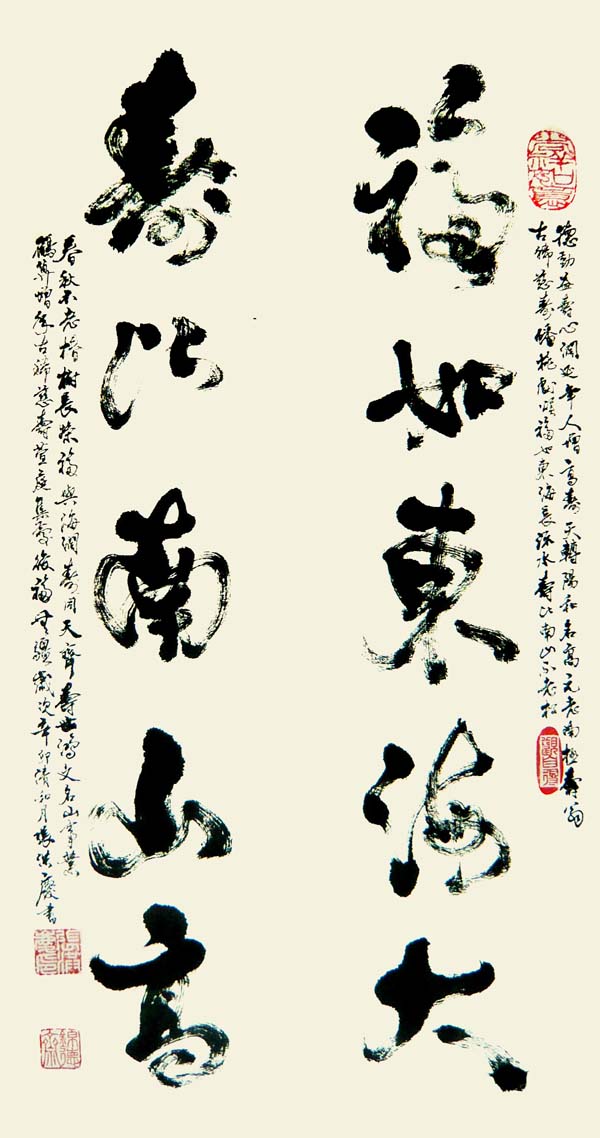 德劭益壽心闊延年人增高壽天轉陽和名高元老南極壽翁
古稀慈壽蟠桃獻頌福如東海長流水壽比南山不老松
福如東海大
壽比南山高
春秋不老椿樹長榮福與海闊壽同天齊壽世鴻文名山事業
鶴算增年古稀慈壽萱庭集慶後福無疆歲次辛卯清和月張洪慶書